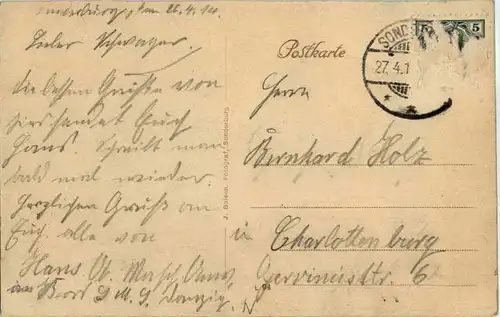 Sonderburg, den 26.4.14.
Lieber Schwager.
Die besten Grüße von
hier sendet Euch
Hans. Schreibt man
bald mal wieder.
Herzlichen Gruß an
Euch alle von
Hans Ob. Masch.
an Bord S. M. S. Danzig.
Postkarte
SONDE
27.4.1
5
Herrn
Bernhard Holz
in Charlottenburg
Gervinusstr. 6
J. Fotograf, Sonderburg.